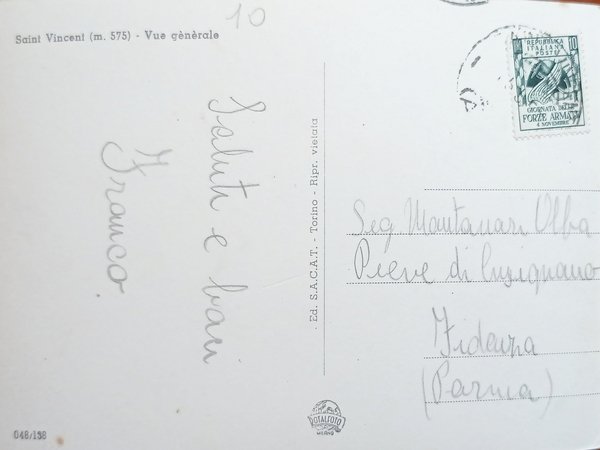 10
Saint Vincent (m. 575) - Vue gènèrale
Saluti e baci
Franco.
Ed. S.A.C.A.T. - Torino - Ripr. vietata
REPUBBLICA
ITALIANA
POSTE
10
GIORNATA DELLE
FORZE ARMATE
4 NOVEMBRE
Sig Montanari Alba
Pieve di Cusignano
Fidenza
(Parma)
ROTALFOTO
MILANO
048/158